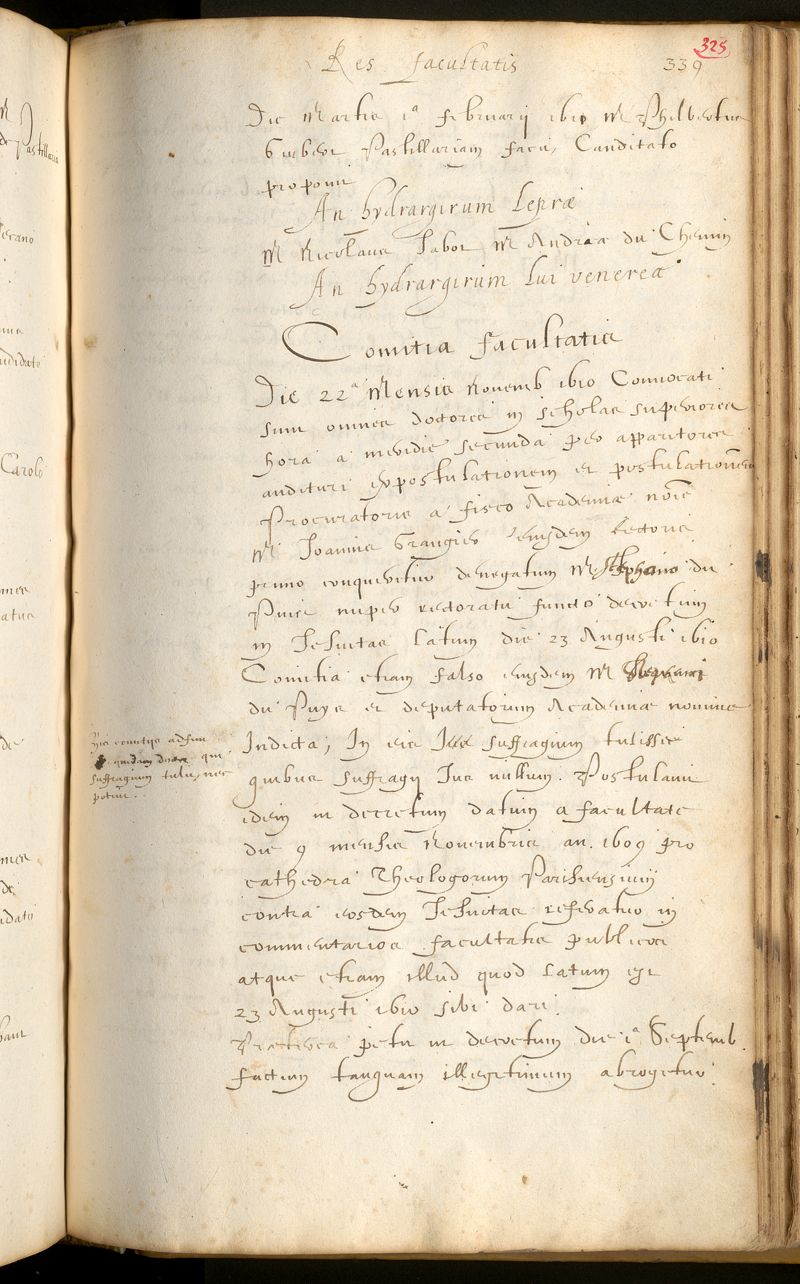 325
Res facultatis 339
Die Martis 1ª februarij 1610 M Philbertus
Guibert Pastillariam facit, Canditato
proponit
An hydrargirum Lepræ
M Nicolaus Jabot, M Andræas du Chemin
An hydrargirum lui venereæ
Comitia facultatis
Die 22ª Mensis novemb 1610 Convocati
sunt omnes doctores in scholas superiores
hora a meridie secunda per apparitores
audituri expostulationem et postulationem
Procuratoris a fisco Academiæ noīe
M Joannis Grangier eiusdem Rectoris
primo conqueritur denegatum M Stephano du
Puis nuper rectoratu functo decretum
in Jesuitas latum die 23 Augusti 1610
Comitia etiam falso eiusdem M Stephani
du Puys et deputatorum Academiæ nomine
Indicta, In eis suffragium tulisse
quibus suffragij Jus nullum. Postulavit
idem ut decretum datum a facultate
die 9 mensis Novembris an. 1609 pro
cathedra Theologorum Parisiensium
contra eosdem Jesuitas referatur in
commentarios facultatis publicos
atque etiam illud quod latum est
23 Augusti 1610 sibi dari.
Præterea petit ut decretum die 1ª Septemb
factum tanquam illegitimum abrogetur.
comitijs adfuit
quidam qui
suffragium tulit, nec
potuit.